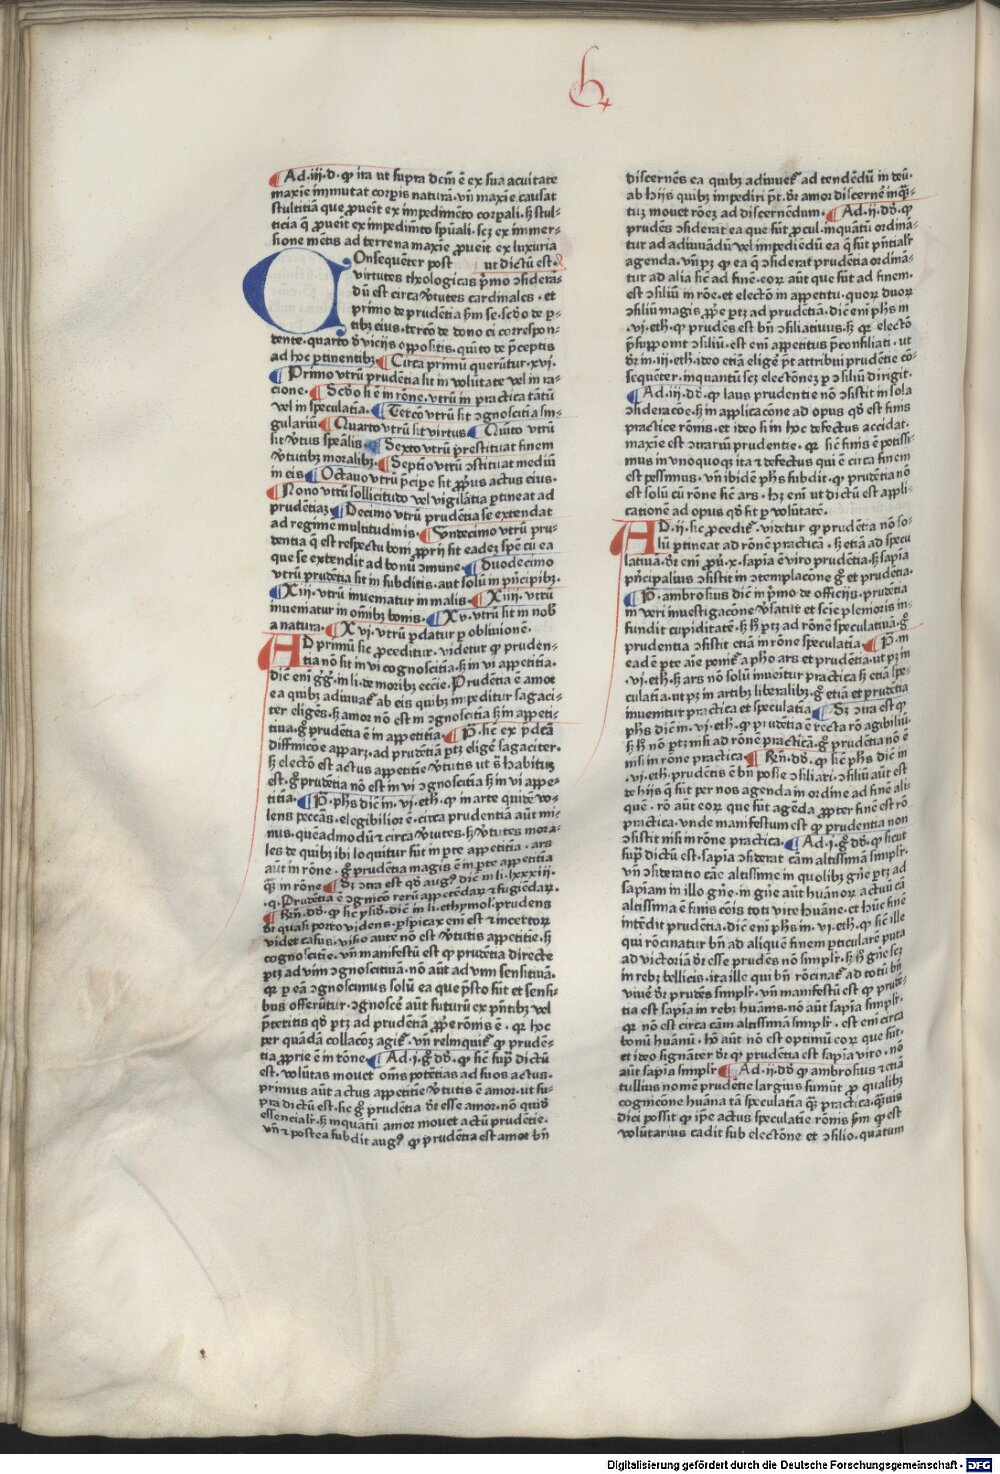 h
Ad.iij.d. ꝙ ira ut supra dc̄m ē ex sua acuitate
maxīe immutat corꝑis naturā. vn̄ maxīe causat
stultitiā que ꝓueīt ex impedimēto corꝑali. ꝫ stul-
ticia q̄ ꝓueīt ex impedimēto spūali. scꝫ ex immer-
sione mētis ad terrena maxīe ꝓueīt ex luxuria
Onsequēter post ut dictū est.
virtutes theologicas p̄mo ↄsiderā-
dū est circa v̓tutes cardinales. et
primo de prudētia ꝑm se. scd̓o de ꝑ-
tibꝫ eius. tercō de dono ei correspon-
dente. quarto d̓ vicijs oppositis. quīto de p̄ceptis
ad hoc ꝑtinentibꝫ Circa primū querūtur. xvi.
Primo vtrū prudētia sit in volūtate vel in ra-
cione. Scd̓o si ē in rōne. vtrū in practica tātū
vel in speculatīa. Tercō vtrū sit ↄgnoscitīa sin-
gulariū Quarto vtrū sit virtus Quīto vtrū
sit v̓tus spēalis. Sexto vtrū prestituat finem
v̓tutibꝫ moralibꝫ. Septīo vtrū ↄstituat mediū
in eis Octauo vtrū p̄cipe sit ꝓpus actus eius.
Nono vtrū sollicitudo vel vigilātia ꝑtineat ad
prudētiaꝫ Decimo vtrū prudētia se extendat
ad regimē multitudinis. Vndecimo vtrū pru-
dentia q̄ est respectu boni ꝓprij sit eadeꝫ spē cū ea
que se extendit ad bonū ↄmune. Duodecimo
vtrū prudētia sit in subditis. aut solū in pn̄cipibꝫ.
Xiij. vtrū inueniatur in malis. Xiiij. vtrū
inueniatur in om̄ibꝫ bonis. Xv. vtrū sit in nob̄
a natura. Xvj. vtrū ꝑdatur ꝑ obliuionē.
AD primū sic ꝓceditur. videtur ꝙ pruden-
tia nō sit in vi cognoscitīa. ꝫ in vi appetitīa.
Dic̄ enī gg̓. in li. de moribꝫ eccīe. Prudētia ē amor
ea quibꝫ adiuuat᷑ ab eis quibꝫ impeditur sagaci-
ter eligēs. ꝫ amor nō est in ↄgnoscitīa ꝫ in appeti-
tiua. g̊ prudētia ē in appetitīa. P̄. sic ex p̄dcā
diffinicōe apparꝫ. ad prudētiā ptꝫ eligē sagaciter.
ꝫ electō est actus appetitīe v̓tutis ut s̄ habituꝫ
est. g̊ prudētia nō est in vi ↄgnoscitīa ꝫ in vi appe-
titīa. P̄. phs dic̄ in. vj. eth. ꝙ in arte quidē vo-
lens peccās. elegibilior ē. circa prudentiā aūt mi-
nus. quēadmodū ⁊ circa v̓tutes. ꝫ v̓tutes mora-
les de quibꝫ ibi loquitur sūt in ꝑte appetitīa. ars
aūt in rōne. g̊ prudētia magis ē in ꝑte appetitīa
qꝫ in rōne Sꝫ ↄtra est qd̓ aug⁹ dic̄ in li. lxxxiij.
q. Prudētia ē ↄgnicō rerū appetēdaꝝ ⁊ fugiēdaꝝ.
Rn̄. dd̓. ꝙ sic ysid̓. dic̄ in li. ethymol. prudens
dr̄ quasi porro videns. ꝑspicax enī est ⁊ incertoꝝ
videt casus. visio aūtē nō est v̓tutis appetitīe. ꝫ
cognoscitīe. vn̄ manifestū est ꝙ prudētia directe
ptꝫ ad vim ↄgnoscitiuā. nō aūt ad vim sensitiuā.
qꝛ ꝑ eā ↄgnoscimus solū ea que p̄sto sūt et sensi-
bus offerūtur. ↄgnoscē aūt futurū ex pn̄tibꝫ vel
p̄teritis qd̓ ptꝫ ad prudētiā ꝓp̄e rōnis ē. qꝛ hoc
ꝑer quādā collacōeꝫ agit᷑. vn̄ relinquit᷑ ꝙ prudē-
tia ꝓprie ē in rōne. Ad. j. g̊ dd̓. ꝙ sic sup̄ dictū
est. volūtas mouet om̄s potētias ad suos actus.
primus aūt actus appetitīe v̓tutis ē amor. ut su-
pra dictū est. sic g̊ prudētia dr̄ esse amor. nō quid̓
essencialr̄. ꝫ inquātū amor mouet actū prudētie.
vn̄ ⁊ postea subdit aug⁹ ꝙ prudētia est amor bn̄
discernēs ea quibꝫ adiuuet᷑ ad tendēdū in deū.
ab hijs quibꝫ impediri p̄t. dr̄ amor discernē inqꝫ-
tuꝫ mouet rōeꝫ ad discernēdum. Ad. ij. dd̓. ꝙ
prudēs ↄsiderat ea que sūt ꝓcul. inquātū ordinā-
tur ad adiuuādū vel impediēdū ea q̄ sūt pn̄tialr̄
agenda. vn̄ pꝫ ꝙ ea q̄ ↄsiderat prudētia ordinā-
tut ad alia sic̄ ad finē. eoꝝ aūt que sūt ad finem.
est ↄsiliū in rōe. et electō in appetitu. quoꝝ duoꝝ
ↄsiliū magis ꝓp̄e ptꝫ ad prudētiā. dic̄ enī phs in
.vj. eth. ꝙ prudēs est bn̄ ↄsiliatiuus. ꝫ qꝛ electō
p̄supponit ↄsiliū. est enī appetitus p̄consiliati. ut
dr̄ in. iij. eth. ideo etiā eligē p̄t attribui prudētie cō-
sequēter. inquantū scꝫ electōneꝫ ꝑ ↄsiliū dirigit.
Ad. iij. dd̓. ꝙ laus prudentie nō ↄsistit in sola
ↄsideracōe. ꝫ in applicacōne ad opus qd̓ est finis
practice rōnis. et ideo si in hoc defectus accidat.
maxīe est ↄtrariū prudentie. qꝛ sic̄ finis ē potissi-
mus in vnoquoqꝫ ita ⁊ defectus qui ē circa finem
est pessimus. vn̄ ibidē phs subdit. ꝙ prudētia nō
est solū cū rōne sic̄ ars. hꝫ enī ut dictū est appli-
cationē ad opus qd̓ sit ꝑ volūtatē.
AD. ij. sic ꝓcedit᷑. videtur ꝙ prudētia nō so-
lū ꝑtineat ad rōnē practicā. ꝫ etiā ad specu
latiuā. dr̄ enī ꝓu̓. x. sapīa ē viro prudētia. ꝫ sapīa
pn̄cipalius ↄsistit in ↄtemplacōne g̊ et prudētia.
P̄. ambrosius dic̄ in p̄mo de officijs. prudētia
in veri inuestigacōne v̓satur et scīe plenioris in-
fundit cupiditatē. ꝫ h̄ ptꝫ ad rōnē speculatiuā. g̊
prudentia ↄsistit etiā in rōne speculatīa P̄. in
eadē ꝑte aīe ponit᷑ a pho ars et prudētia. ut pꝫ in
.vj. eth. ꝫ ars nō solū inueītur practica ꝫ etiā spe-
culatīa. ut pꝫ in artibꝫ liberalibꝫ. g̊ etiā et prudētia
inuenitur practica et speculatīa Sꝫ ↄtra est ꝙ
phs dic̄ in. vj. eth. ꝙ prudētia ē recta rō agibiliū.
ꝫ h̄ nō ptꝫ nisi ad rōnē practicā. g̊ prudētia nō ē
nisi in rōne practica. Rn̄. dd̓. ꝙ sic̄ phs dic̄ in
.vi. eth. prudētis ē bn̄ posse ↄsiliari. ↄsiliū aūt est
de hijs q̄ sūt per nos agenda in ordine ad finē ali-
quē. rō aūt eoꝝ que sūt agēda ꝓpter finē est rō
practica. vnde manifestum est ꝙ prudentia non
ↄsistit nisi in rōne practica. Ad. j. g̊ dd̓. ꝙ sicut
sup̄ dictū est. sapīa ↄsiderat cām altissimā simplr̄.
vn̄ ↄsideratio cāe altissime in quolibꝫ gn̄e ptꝫ ad
sapiam in illo gn̄e. in gn̄e aūt huānoꝝ actuū cā
altissima ē finis cōis toti vite huāne. et hūc finē
intēdit prudētia. dic̄ enī phs in. vj. eth. ꝙ sic̄ ille
qui rōcinatur bn̄ ad aliquē finem ꝑticularē puta
ad victoriā dr̄ esse prudēs nō simplr̄. ꝫ h̄ gn̄e scꝫ
in rebꝫ bellicis. ita ille qui bn̄ rōcinat᷑ ad totū bn̄
viuē dr̄ prudēs simplr̄. vn̄ manifestū est ꝙ prudē-
tia est sapīa in rebꝫ huānis. nō aūt sapīa simplr̄.
qꝛ nō est circa cām altissimā simplr̄. est enī circa
bonū huānū. hō aūt nō est optimū eoꝝ que sūt.
et ideo signāter dr̄ ꝙ prudētia est sapīa viro. nō
aūt sapīa simplr̄ Ad. ij. dd̓ ꝙ ambrosius ⁊ etiā
tullius nomē prudētie largius sumūt ꝓ qualibꝫ
cognicōne huāna tā speculatīa qꝫ practica. qꝫuis
dici possit ꝙ ipse actus speculatīe rōnis ꝑm ꝙ est
volūtarius cadit sub electōne et ↄsilio. quātum
Digitalisierung gefördert durch die Deutsche Forschungsgemeinschaft -
DFG